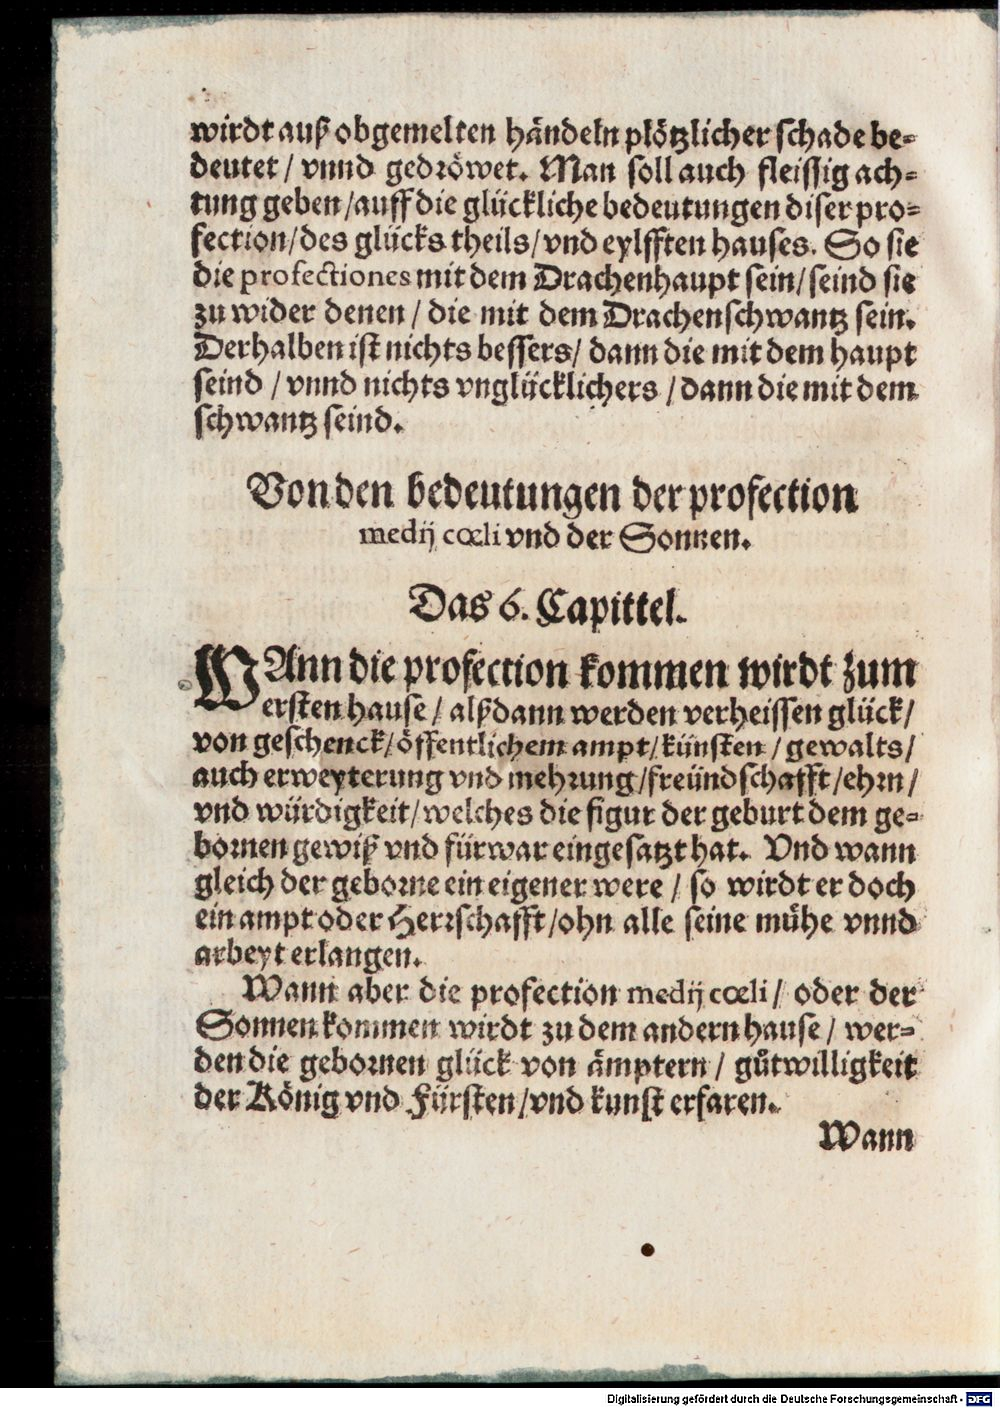 wirdt auß obgemelten händeln plötzlicher schade be-
deutet / vnnd gedröwet. Man soll auch fleissig ach-
tung geben / auff die glückliche bedeutungen diser pro-
fection / des glücks theils / vnd eylfften hauses. So sie
die profectiones mit dem Drachenhaupt sein / seind sie
zu wider denen / die mit dem Drachenschwantz sein.
Derhalben ist nichts bessers / dann die mit dem haupt
seind / vnnd nichts vnglücklichers / dann die mit dem
schwantz seind.
Von den bedeutungen der profection
medij cœli vnd der Sonnen.
Das 6. Capittel.
WAnn die profection kommen wirdt zum
ersten hause / alßdann werden verheissen glück /
von geschenck / öffentlichem ampt / künsten / gewalts /
auch erweyterung vnd mehrung / freündschafft / ehrn /
vnd würdigkeit / welches die figur der geburt dem ge-
bornen gewiß vnd fürwar eingesatzt hat. Vnd wann
gleich der geborne ein eigener were / so wirdt er doch
ein ampt oder Herrschafft / ohn alle seine mühe vnnd
arbeyt erlangen.
Wann aber die profection medij cœli / oder der
Sonnen kommen wirdt zu dem andern hause / wer-
den die gebornen glück von ämptern / gůtwilligkeit
der König vnd Fürsten / vnd kunst erfaren.
Wann
Digitalisierung gefördert durch die Deutsche Forschungsgemeinschaft - DFG